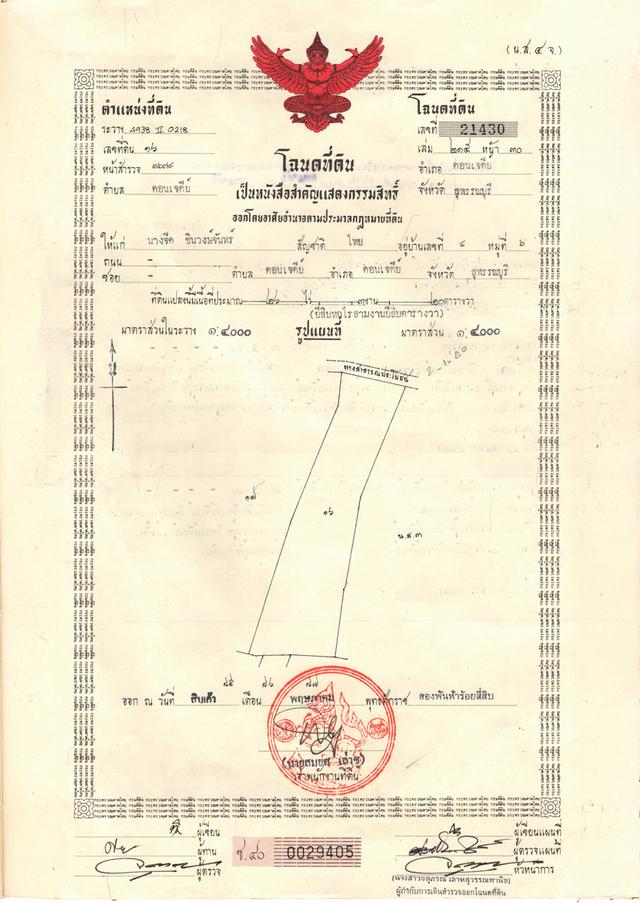 (น.ส. ๔ จ.)
ตำแหน่งที่ดิน
ระวาง 4938 II 0218
เลขที่ดิน ๑๖
หน้าสำรวจ
ตำบล ดอนเจดีย์
โฉนดที่ดิน
เลขที่ 21430
เล่ม ๒๑๕ หน้า ๓๐
อำเภอ ดอนเจดีย์
จังหวัด สุพรรณบุรี
โฉนดที่ดิน
เป็นหนังสือสำคัญแสดงกรรมสิทธิ์
ออกโดยอาศัยอำนาจตามประมวลกฎหมายที่ดิน
ให้แก่ นางจีด ชินวงษ์จันทร์ สัญชาติ ไทย อยู่บ้านเลขที่ ๔ หมู่ที่ ๖
ถนน -
ซอย - ตำบล ดอนเจดีย์ อำเภอ ดอนเจดีย์ จังหวัด สุพรรณบุรี
ที่ดินแปลงนี้มีเนื้อที่ประมาณ ๒๖ ไร่ ๓ งาน ๒๐ ตารางวา
(ยี่สิบหกไร่สามงานยี่สิบตารางวา)
มาตราส่วนในระวาง ๑:๔๐๐๐ รูปแผนที่ มาตราส่วน ๑:๔๐๐๐
ทางสาธารณประโยชน์
๑๗
๑๖
น.ส.๓
ออก ณ วันที่ สิบเก้า เดือน พฤษภาคม พุทธศักราช สองพันห้าร้อยสี่สิบ
เจ้าพนักงานที่ดิน
ผู้เขียน
ผู้ทาน
ผู้ตรวจ
ช. ๔๐ 0029405
ผู้เขียนแผนที่
ผู้ตรวจแผนที่
หัวหน้าการ
ผู้กำกับการเดินสำรวจออกโฉนดที่ดิน